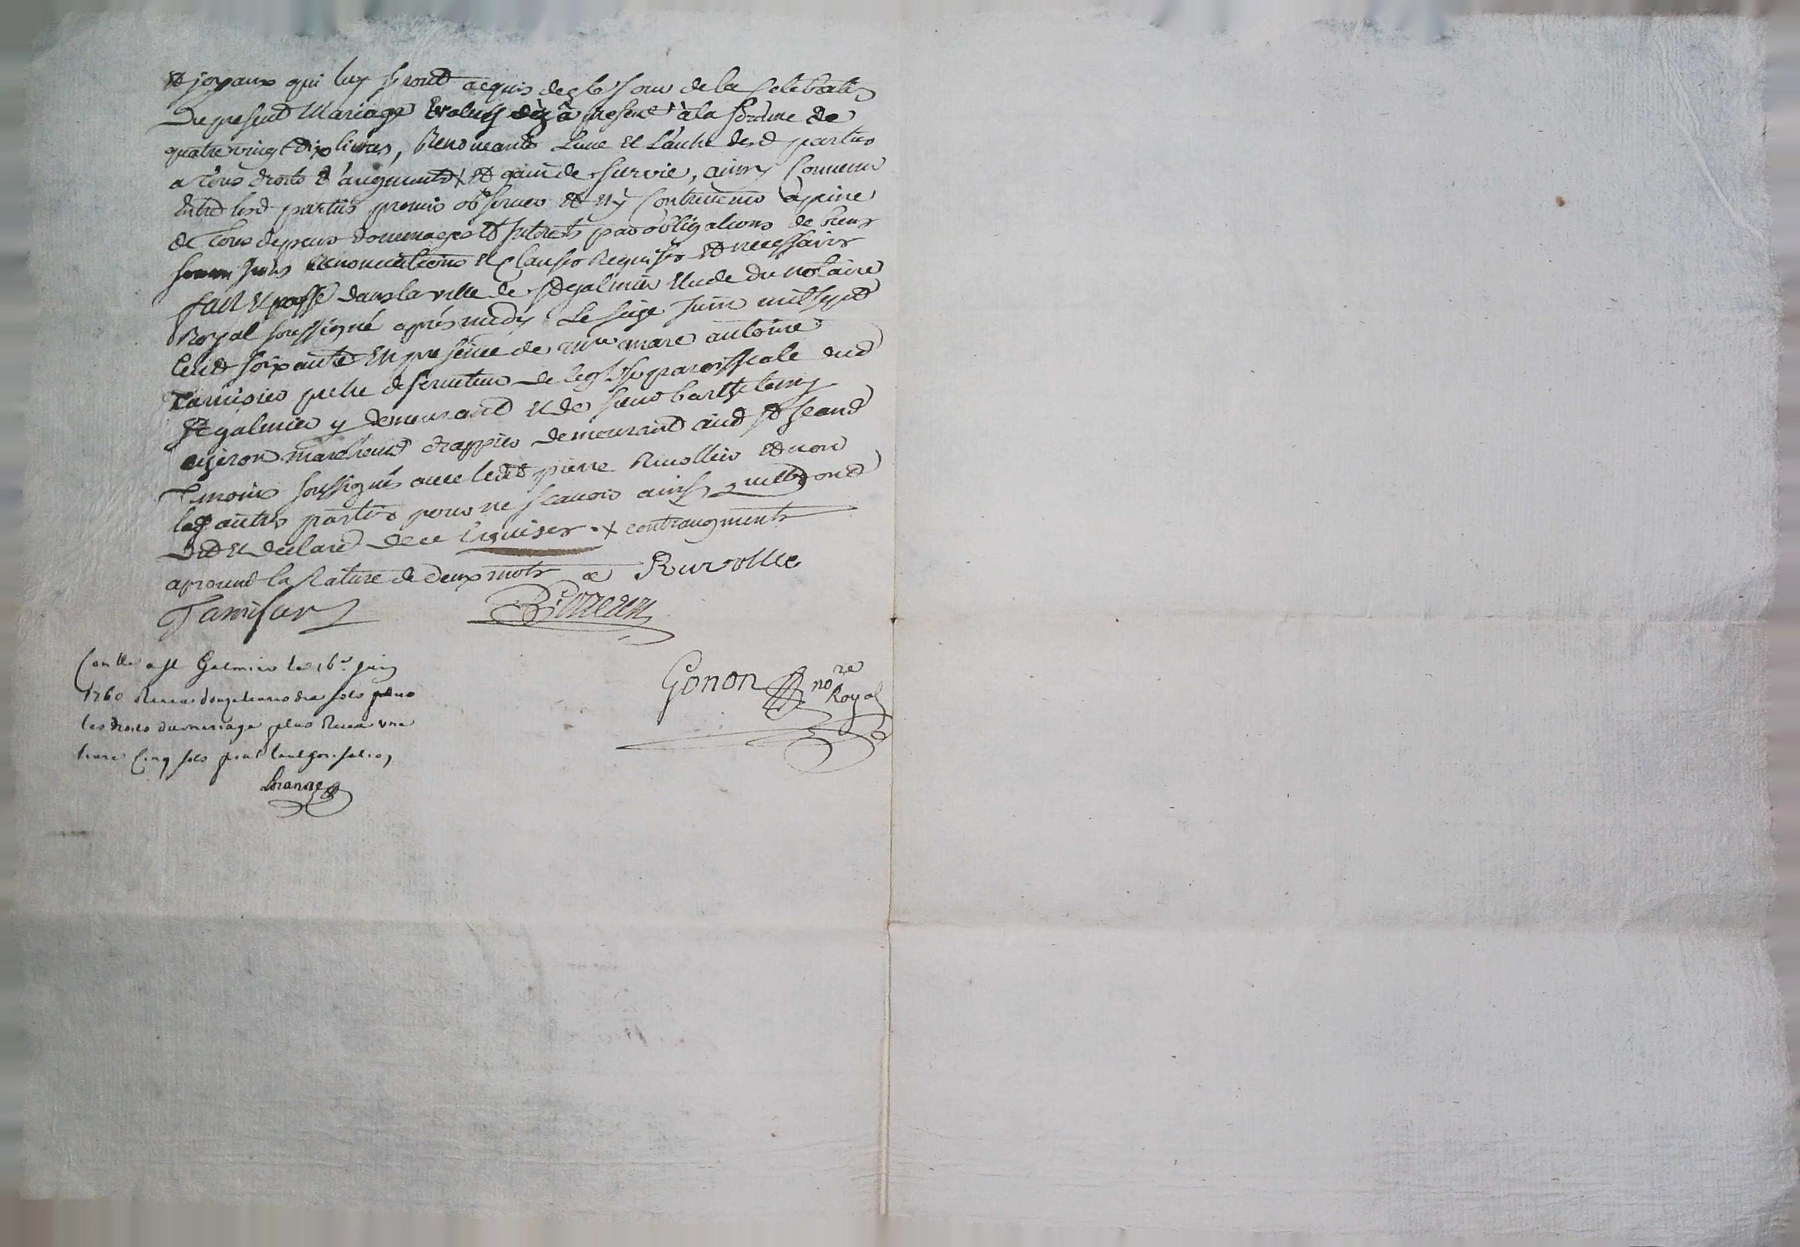 et joyaux qui luy seront acquis des le jour de la Celebration
Du present Mariage Evalués dèz à present à la somme de
quatrevingt dix livres, Renonceants L'une et L'autre desd parties
a tous droits d'augments x et gain de survie, ainsy Convenu
Entre lesd parties promis observer et n'y Contrevenir à peine
de Tous depens dommages et Interets par obligations de biens
soumissions renonciations et Clauses Requises et necessaires
fait et passé dans la ville de st galmier Etude du notaire
Royal soussigné après midy Le seize Juin mil sept
Cent soixante En presence de mre marc antoine
Tamisier pretre desserviteur de l'eglise paroissiale dud
st galmier y demeurant et de sieur barthelemy
marchand drappier demeurant aud st
Temoins soussignés avec led pierre Rivollier et non
les autres parties pour ne scavoir ainsy quelles ont
Dit et declaré de ce Enquises . x contraugments
aprouvé la rature de deux mots Rivollie
Tamisier
Gonon nore
Royal
Conllé a st Galmier le 16e juin
1760 Recu douze livres dix sols pour
les droits du mariage plus Recu une
livre Cinq sols pour